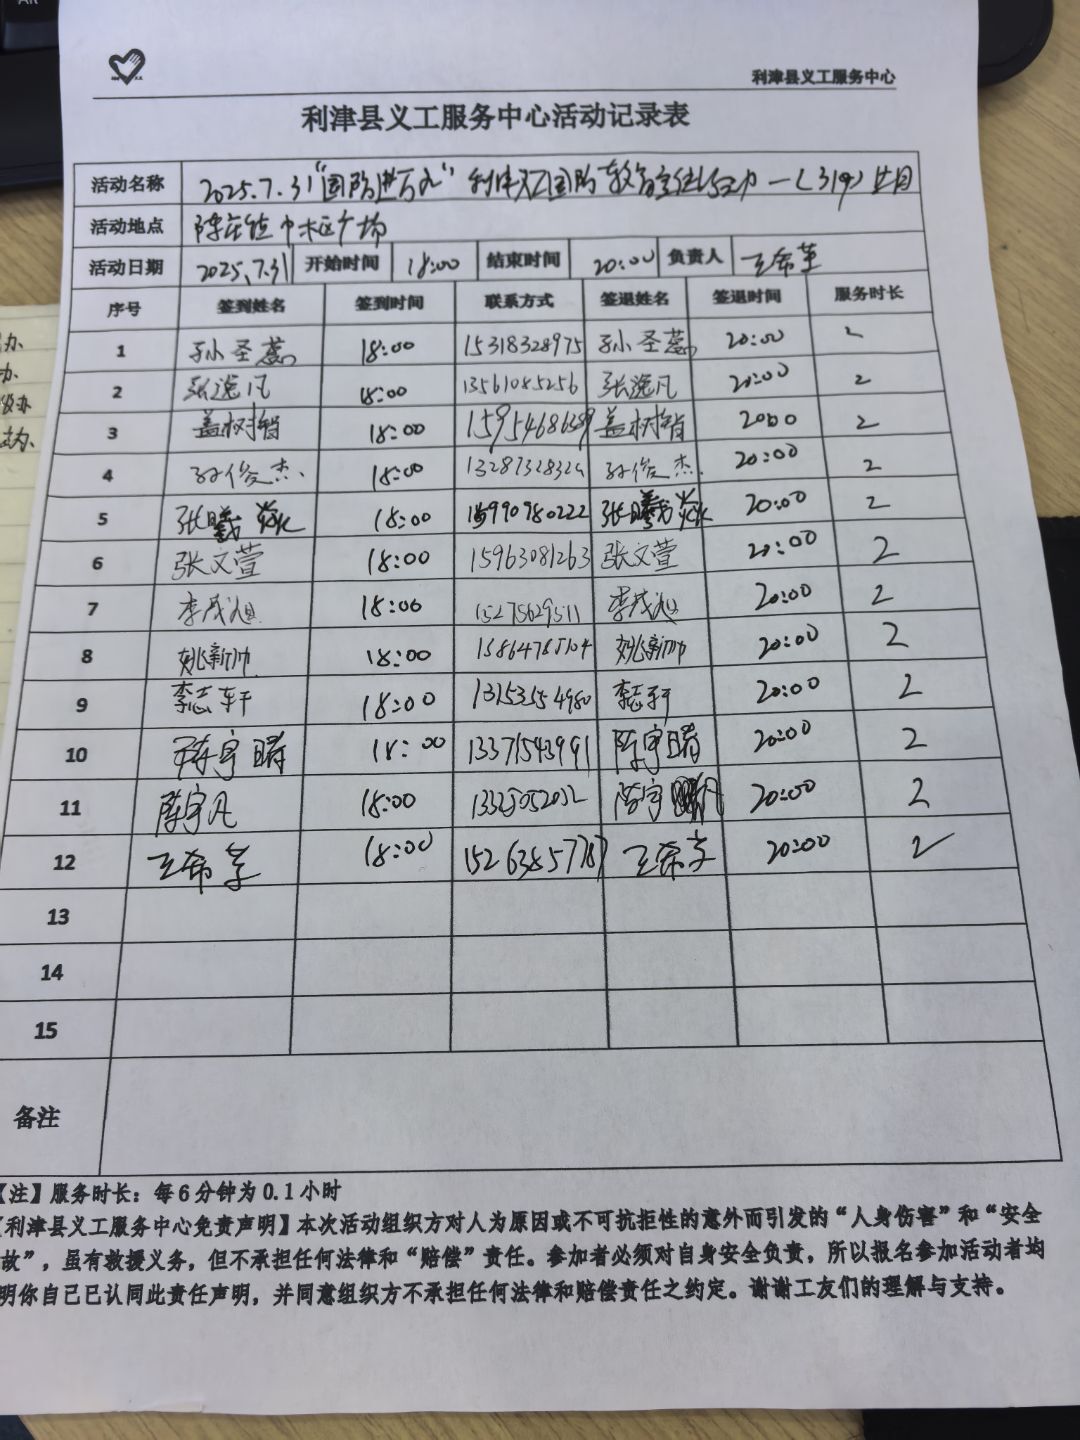 利津县义工服务中心
利津县义工服务中心活动记录表
活动名称 2025.7.31“国防进万家”利津义工国防教育宣传活动一(319)
活动地点 陈庄镇中心广场
活动日期 2025.7.31 开始时间 18:00 结束时间 20:00 负责人 王希
序号 签到姓名 签到时间 联系方式 签退姓名 签退时间 服务时长
1 孙圣蕊 18:00 15318328975 孙圣蕊 20:00 2
2 张逸凡 18:00 13561085256 张逸凡 20:00 2
3 盖树智 18:00 盖树智 2000 2
4 孙俊杰 18:00 孙俊杰 20:00 2
5 张曦 18:00 张曦 20:00 2
6 张文萱 18:00 15963081263 张文萱 20:00 2
7 李茂旭 18:00 15275629511 李茂旭 20:00 2
8 姚新帅 18:00 15864785104 姚新帅 20:00 2
9 李志轩 18:00 李志轩 20:00 2
10 陈宇晴 18:00 13371543991 陈宇晴 20:00 2
11 陈宇凡 18:00 13325052032 陈宇凡 20:00 2
12 王希 18:00 15263857787 王希 20:00 2
13
14
15
备注
【注】服务时长：每6分钟为0.1小时
利津县义工服务中心免责声明】本次活动组织方对人为原因或不可抗拒性的意外而引发的“人身伤害”和“安全
故”，虽有救援义务，但不承担任何法律和“赔偿”责任。参加者必须对自身安全负责，所以报名参加活动者均
明你自己已认同此责任声明，并同意组织方不承担任何法律和赔偿责任之约定。谢谢工友们的理解与支持。